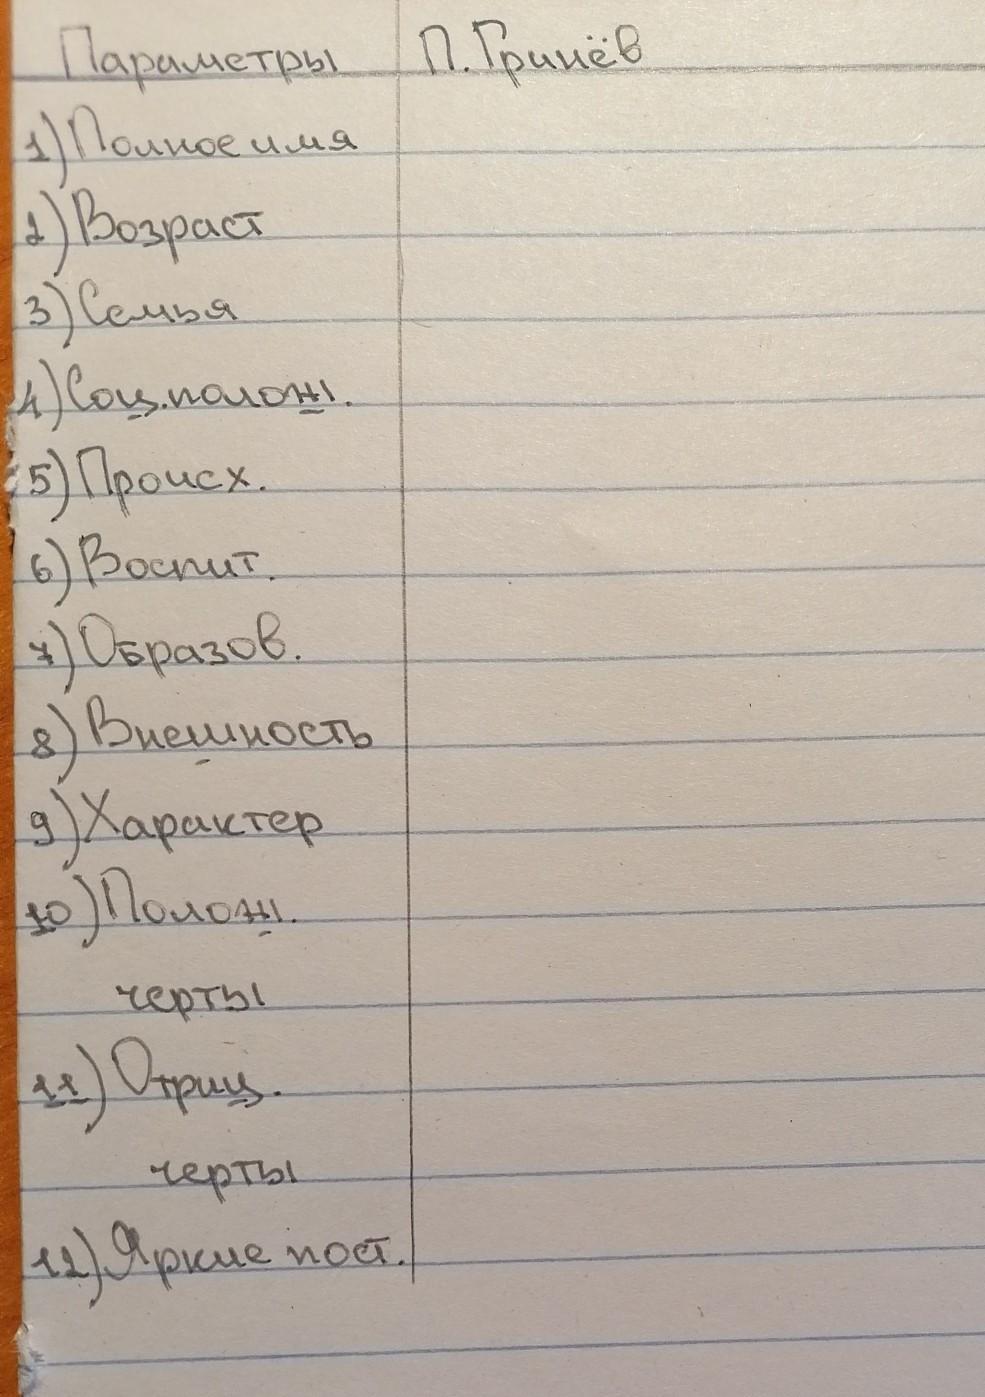 Параметры П. Гринёв
1) Полное имя
2) Возраст
3) Семья
4) Соц. полож.
5) Происх.
6) Воспит.
7) Образов.
8) Внешность
9) Характер
10) Полож.
черты
11) Отриц.
черты
12) Яркие пост.